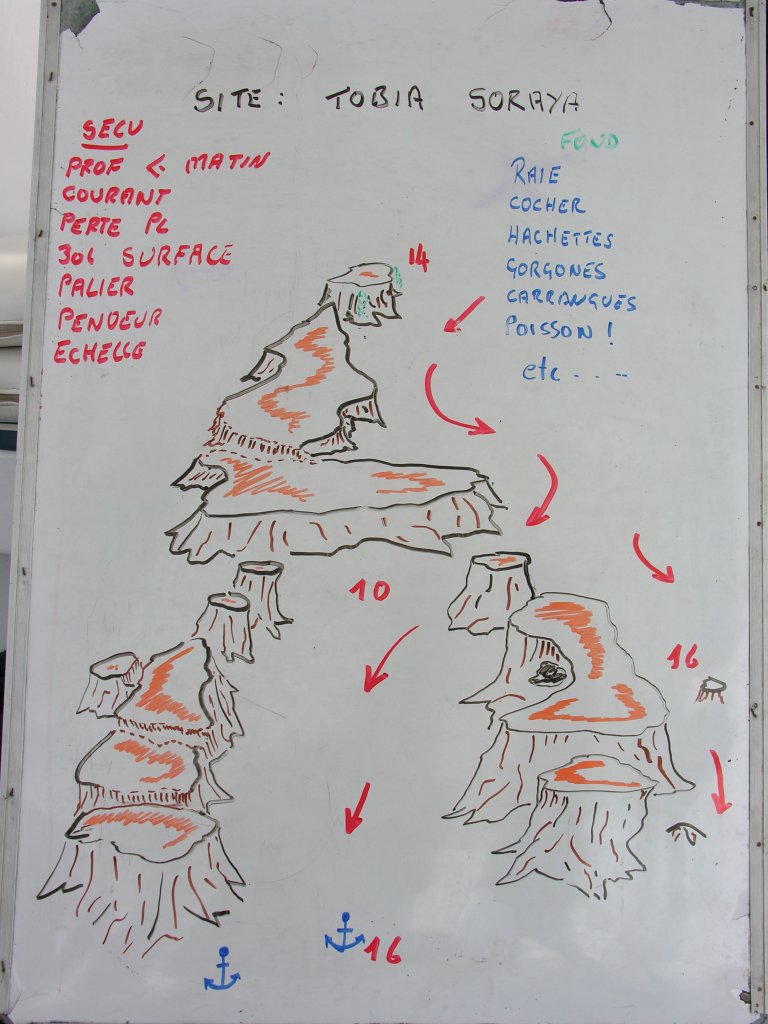 SITE: TOBIA SORAYA
SECU
PROF < MATIN
COURANT
PERTE PL
30L SURFACE
PALIER
PENDEUR
ECHELLE
FOND
RAIE
COCHER
HACHETTES
GORGONES
CARRANGUES
POISSON !
etc . . . --
14
10
16
16